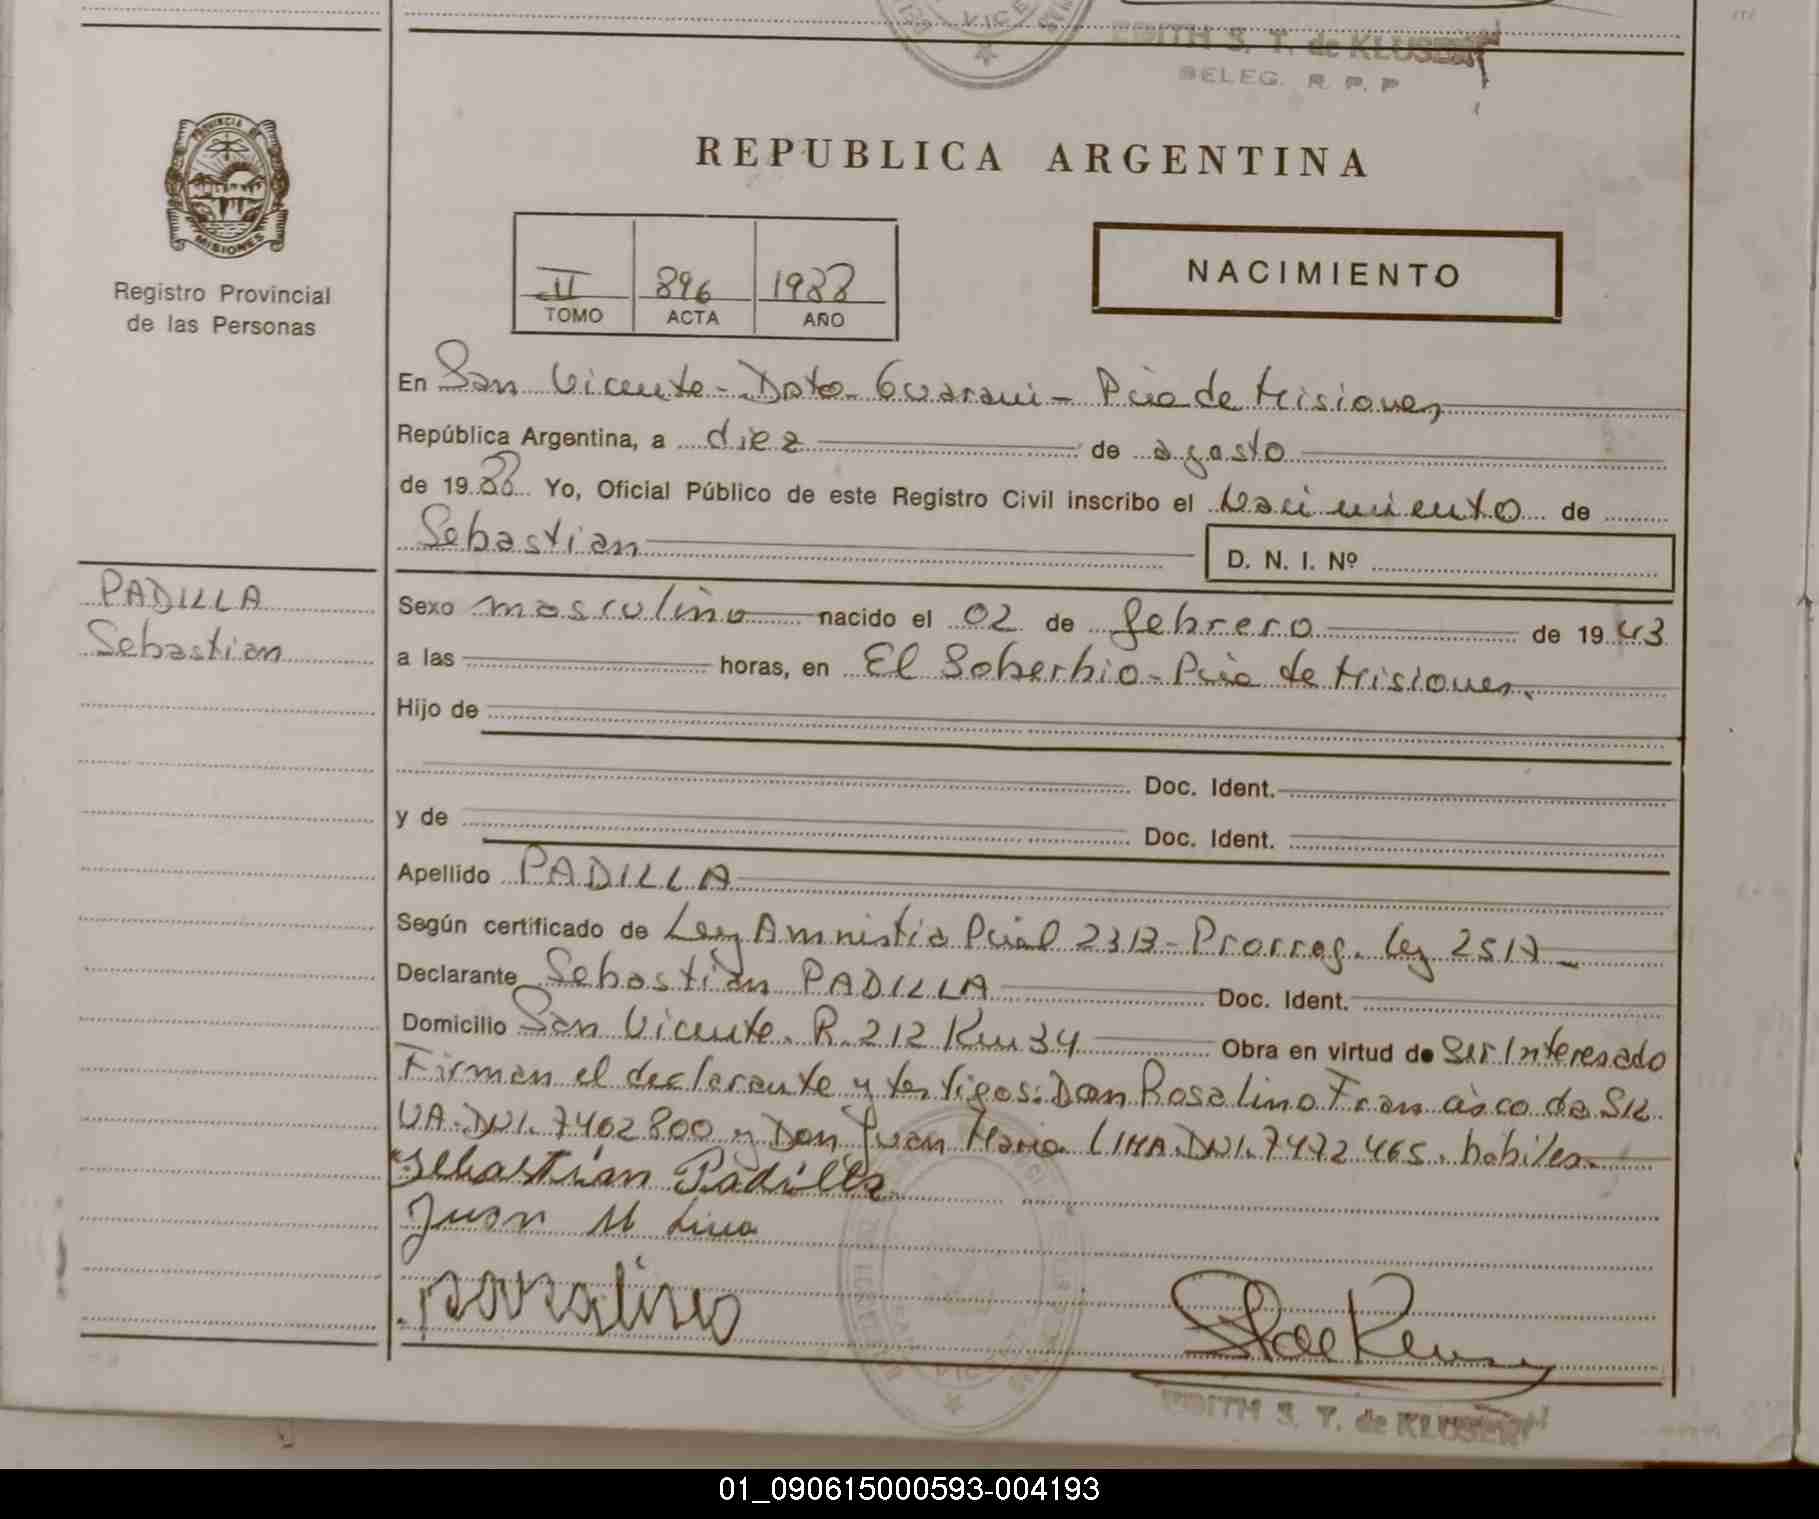 EDITH S. T. de KLUSENER
DELEG. R. P. P
PROVINCIA DE
MISIONES
Registro Provincial
de las Personas
REPUBLICA ARGENTINA
II 896 1988
TOMO ACTA AÑO
NACIMIENTO
En San Vicente - Dpto. Guarani - Pcia de Misiones
República Argentina, a diez de agosto
de 1988 Yo, Oficial Público de este Registro Civil inscribo el Nacimiento de
Sebastian D. N. I. Nº
PADILLA
Sebastian
Sexo masculino nacido el 02 de febrero de 1943
a las horas, en El Soberbio - Pcia de Misiones.
Hijo de
Doc. Ident.
y de Doc. Ident.
Apellido PADILLA
Según certificado de Ley Amnistia Pcial 2313 - Prorrog. Ley 2517
Declarante Sebastian PADILLA Doc. Ident.
Domicilio San Vicente. R. 212 Km 34 Obra en virtud de Ser Interesado
Firman el declarante y testigos: Don Rosalino Francisco da SIL
VA. DNI. 7402800 y Don Juan Maria LIMA. DNI. 7472465. habiles.
Sebastian Padilla
Juan M Lima
Rosalino
EDITH S. T. de KLUSENER
01_090615000593-004193